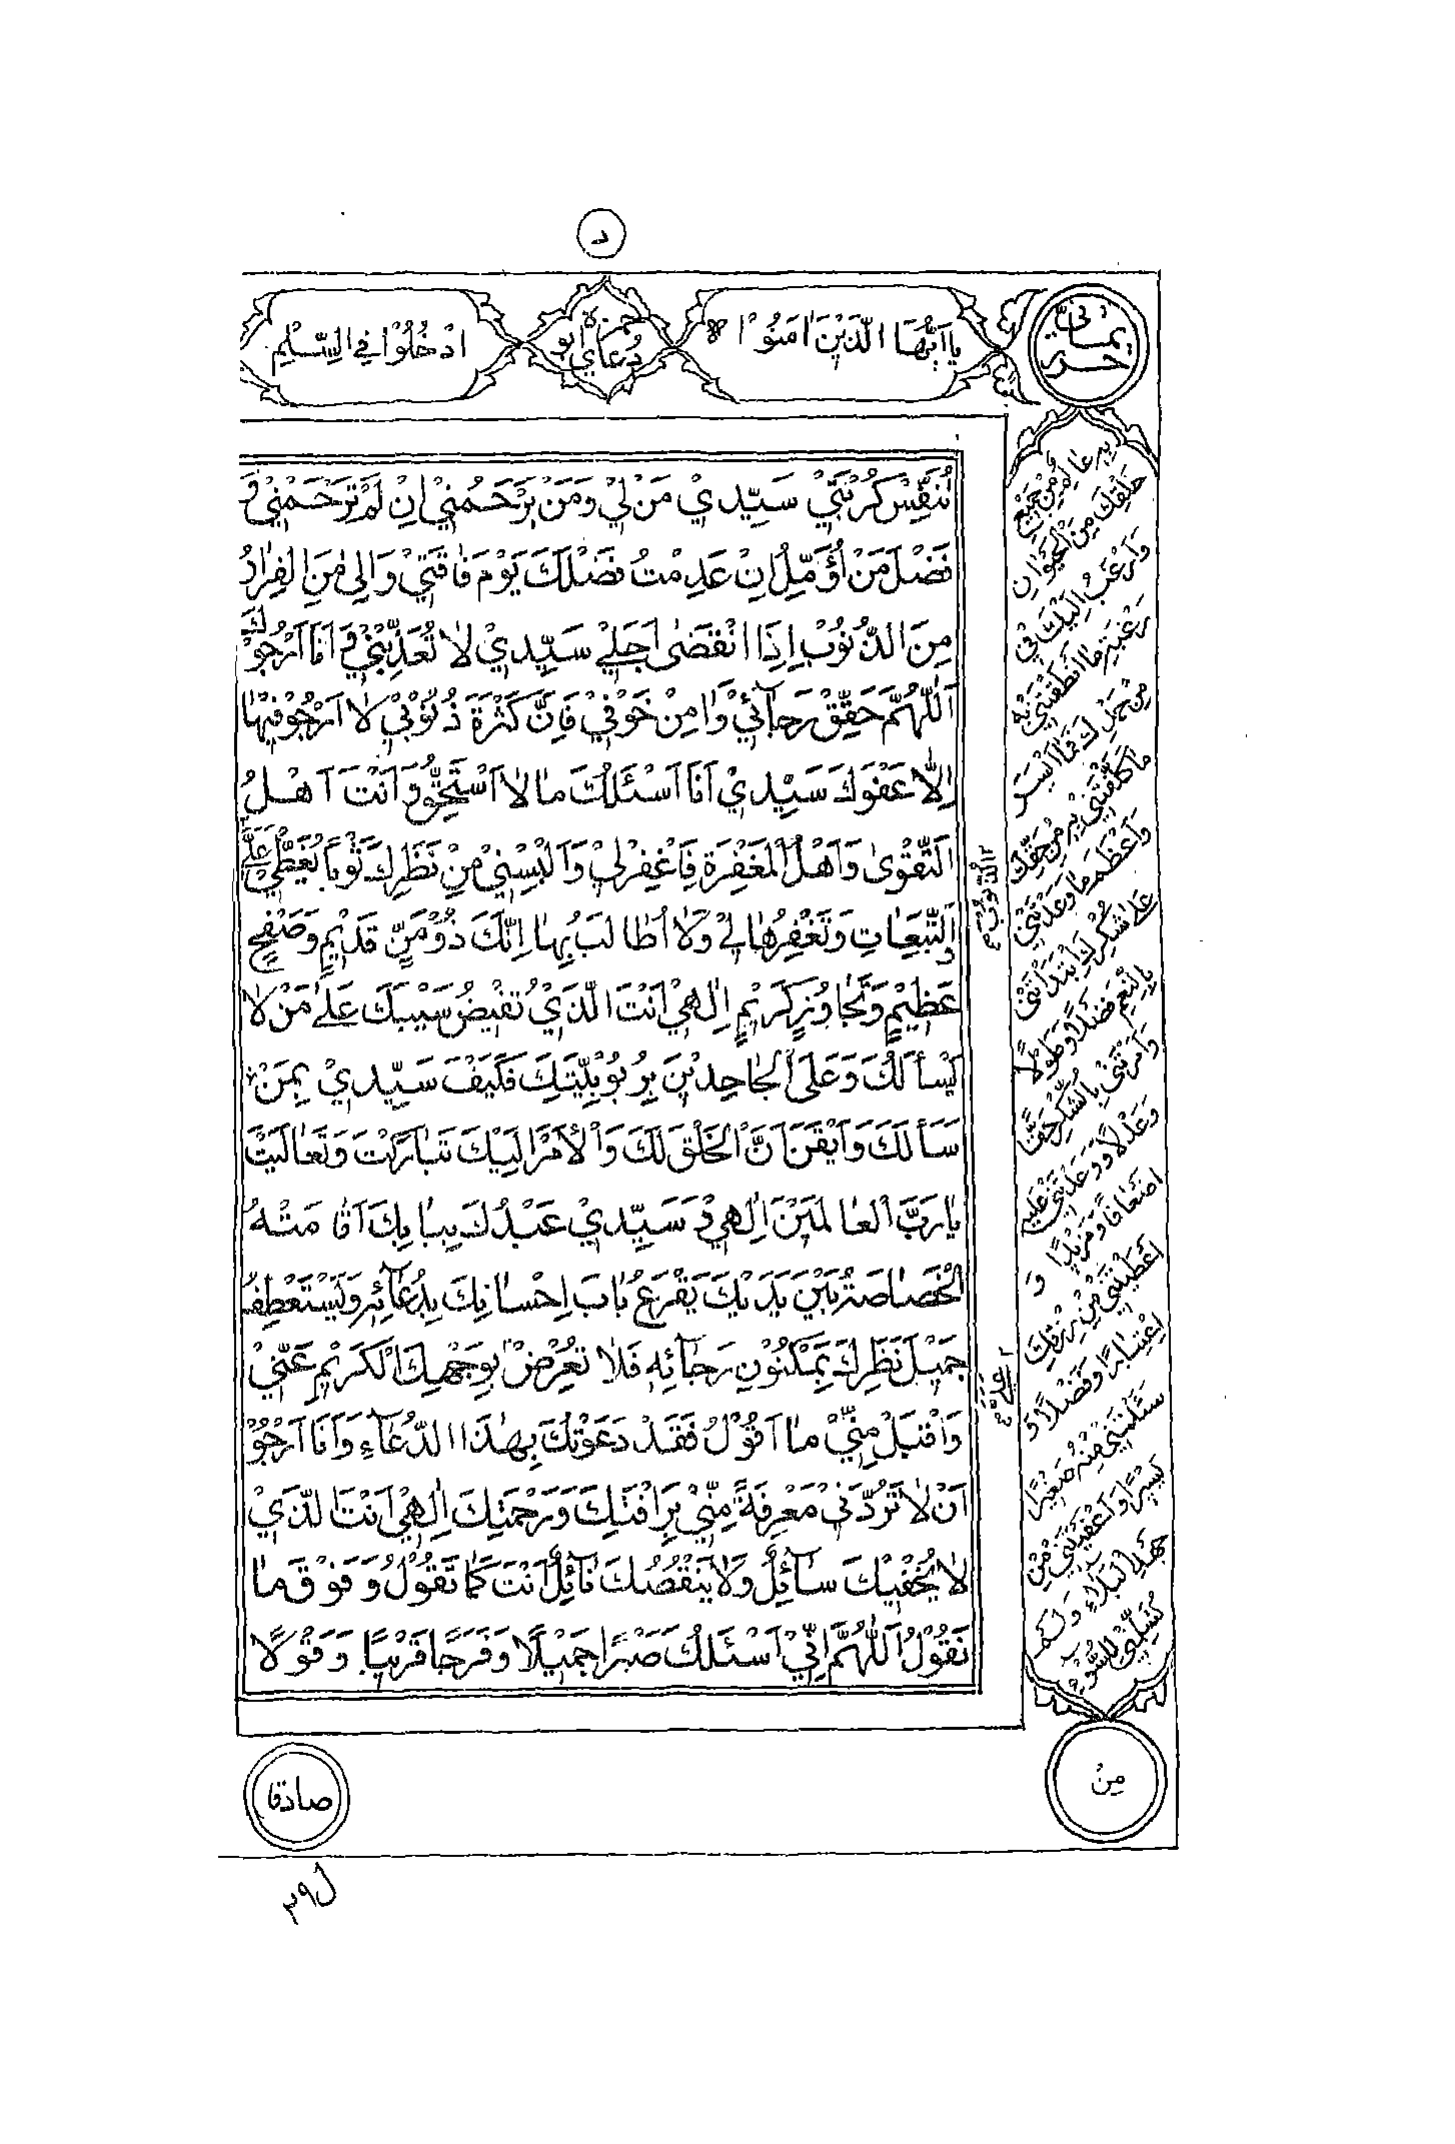 د
يا اَيُّهَا الَّذينَ اٰمَنُوْا
دُعاي ابو حمزه
ادْخُلُوْا فِي السِّلْمِ
حرز يماني
تُنَفِّسْ كُرْبَتِيْ سَيِّدِيْ مَنْ لِيْ وَمَنْ يَرْحَمُنِيْ اِنْ لَمْ تَرْحَمْنِيْ وَ
فَضْلَ مَنْ اُؤَمِّلُ اِنْ عَدِمْتُ فَضْلَكَ يَوْمَ فَاقَتِيْ وَاِلٰى مَنِ الْفِرَارُ
مِنَ الذُّنُوْبِ اِذَا انْقَضٰى اَجَلِيْ سَيِّدِيْ لَا تُعَذِّبْنِيْ وَ اَنَا اَرْجُوْكَ
اَللّٰهُمَّ حَقِّقْ رَجَآئِيْ وَاٰمِنْ خَوْفِيْ فَاِنَّ كَثْرَةَ ذُنُوْبِيْ لَا اَرْجُوْ فِيْهَا
اِلَّا عَفْوَكَ سَيِّدِيْ اَنَا اَسْئَلُكَ مَا لَا اَسْتَحِقُّ وَ اَنْتَ اَهْلُ
التَّقْوٰى وَاَهْلُ الْمَغْفِرَةِ فَاغْفِرْ لِيْ وَاَلْبِسْنِيْ مِنْ نَظَرِكَ ثَوْبًا يُغَطِّيْ عَلَيَّ
التَّبِعَاتِ وَتَغْفِرُهَا لِيْ وَلَا اُطَالَبُ بِهَا اِنَّكَ ذُوْ مَنٍّ قَدِيْمٍ وَصَفْحٍ
عَظِيْمٍ وَتَجَاوُزٍ كَرِيْمٍ اِلٰهِيْ اَنْتَ الَّذِيْ تُفِيْضُ سَيْبَكَ عَلٰى مَنْ لَا
يَسْأَلُكَ وَعَلَى الْجَاحِدِيْنَ بِرُبُوْبِيَّتِكَ فَكَيْفَ سَيِّدِيْ بِمَنْ
سَأَلَكَ وَاَيْقَنَ اَنَّ الْخَلْقَ لَكَ وَالْاَمْرَ اِلَيْكَ تَبَارَكْتَ وَتَعَالَيْتَ
يَا رَبَّ الْعَالَمِيْنَ اِلٰهِيْ سَيِّدِيْ عَبْدُكَ بِبَابِكَ اَقَامَتْهُ
الْخَصَاصَةُ بَيْنَ يَدَيْكَ يَقْرَعُ بَابَ اِحْسَانِكَ بِدُعَآئِهِ وَيَسْتَعْطِفُ
جَمِيْلَ نَظَرِكَ بِمَكْنُوْنِ رَجَآئِهِ فَلَا تُعْرِضْ بِوَجْهِكَ الْكَرِيْمِ عَنِّيْ
وَاقْبَلْ مِنِّيْ مَا اَقُوْلُ فَقَدْ دَعَوْتُكَ بِهٰذَا الدُّعَآءِ وَاَنَا اَرْجُوْ
اَنْ لَا تَرُدَّنِيْ مَعْرِفَةً مِنِّيْ بِرَافَتِكَ وَرَحْمَتِكَ اِلٰهِيْ اَنْتَ الَّذِيْ
لَا يُحْفِيْكَ سَآئِلٌ وَلَا يَنْقُصُكَ نَآئِلٌ اَنْتَ كَمَا تَقُوْلُ وَفَوْقَ مَا
نَقُوْلُ اَللّٰهُمَّ اِنِّيْ اَسْئَلُكَ صَبْرًا جَمِيْلًا وَفَرَجًا قَرِيْبًا وَ قَوْلًا
الذُّنُوْبَ
مِنْ جَمِيْعِ
خَلْقِكَ مِنَ الْحَيَوَانِ
وَاَرْغَبُ اِلَيْكَ فِيْ
مَا اَنْطَقْتَنِيْ بِهِ
مِنْ حَمْدِكَ فَمَا اَيْسَرَ
مَا كَلَّفْتَنِيْ بِهِ مِنْ حَقِّكَ
وَاَعْظَمَ مَا وَعَدْتَنِيْ
عَلٰى شُكْرِكَ ابْتَدَأْتَنِيْ
بِالنِّعَمِ فَضْلًا وَطَوْلًا
وَاَمَرْتَنِيْ بِالشُّكْرِ حَقًّا
وَعَدْلًا وَوَعَدْتَنِيْ عَلَيْهِ
اَضْعَافًا وَمَزِيْدًا وَ
اَعْطَيْتَنِيْ مِنْ رِزْقِكَ
اِعْتِبَارًا وَفَضْلًا وَ
سَئَلْتَنِيْ مِنْهُ صَغِيْرًا
يَسِيْرًا وَاَعْفَيْتَنِيْ مِنْ
جَهْدِ الْبَلَاءِ وَلَمْ
تُسْلِمْنِيْ لِلسُّوْءِ
مِنْ
صادقا